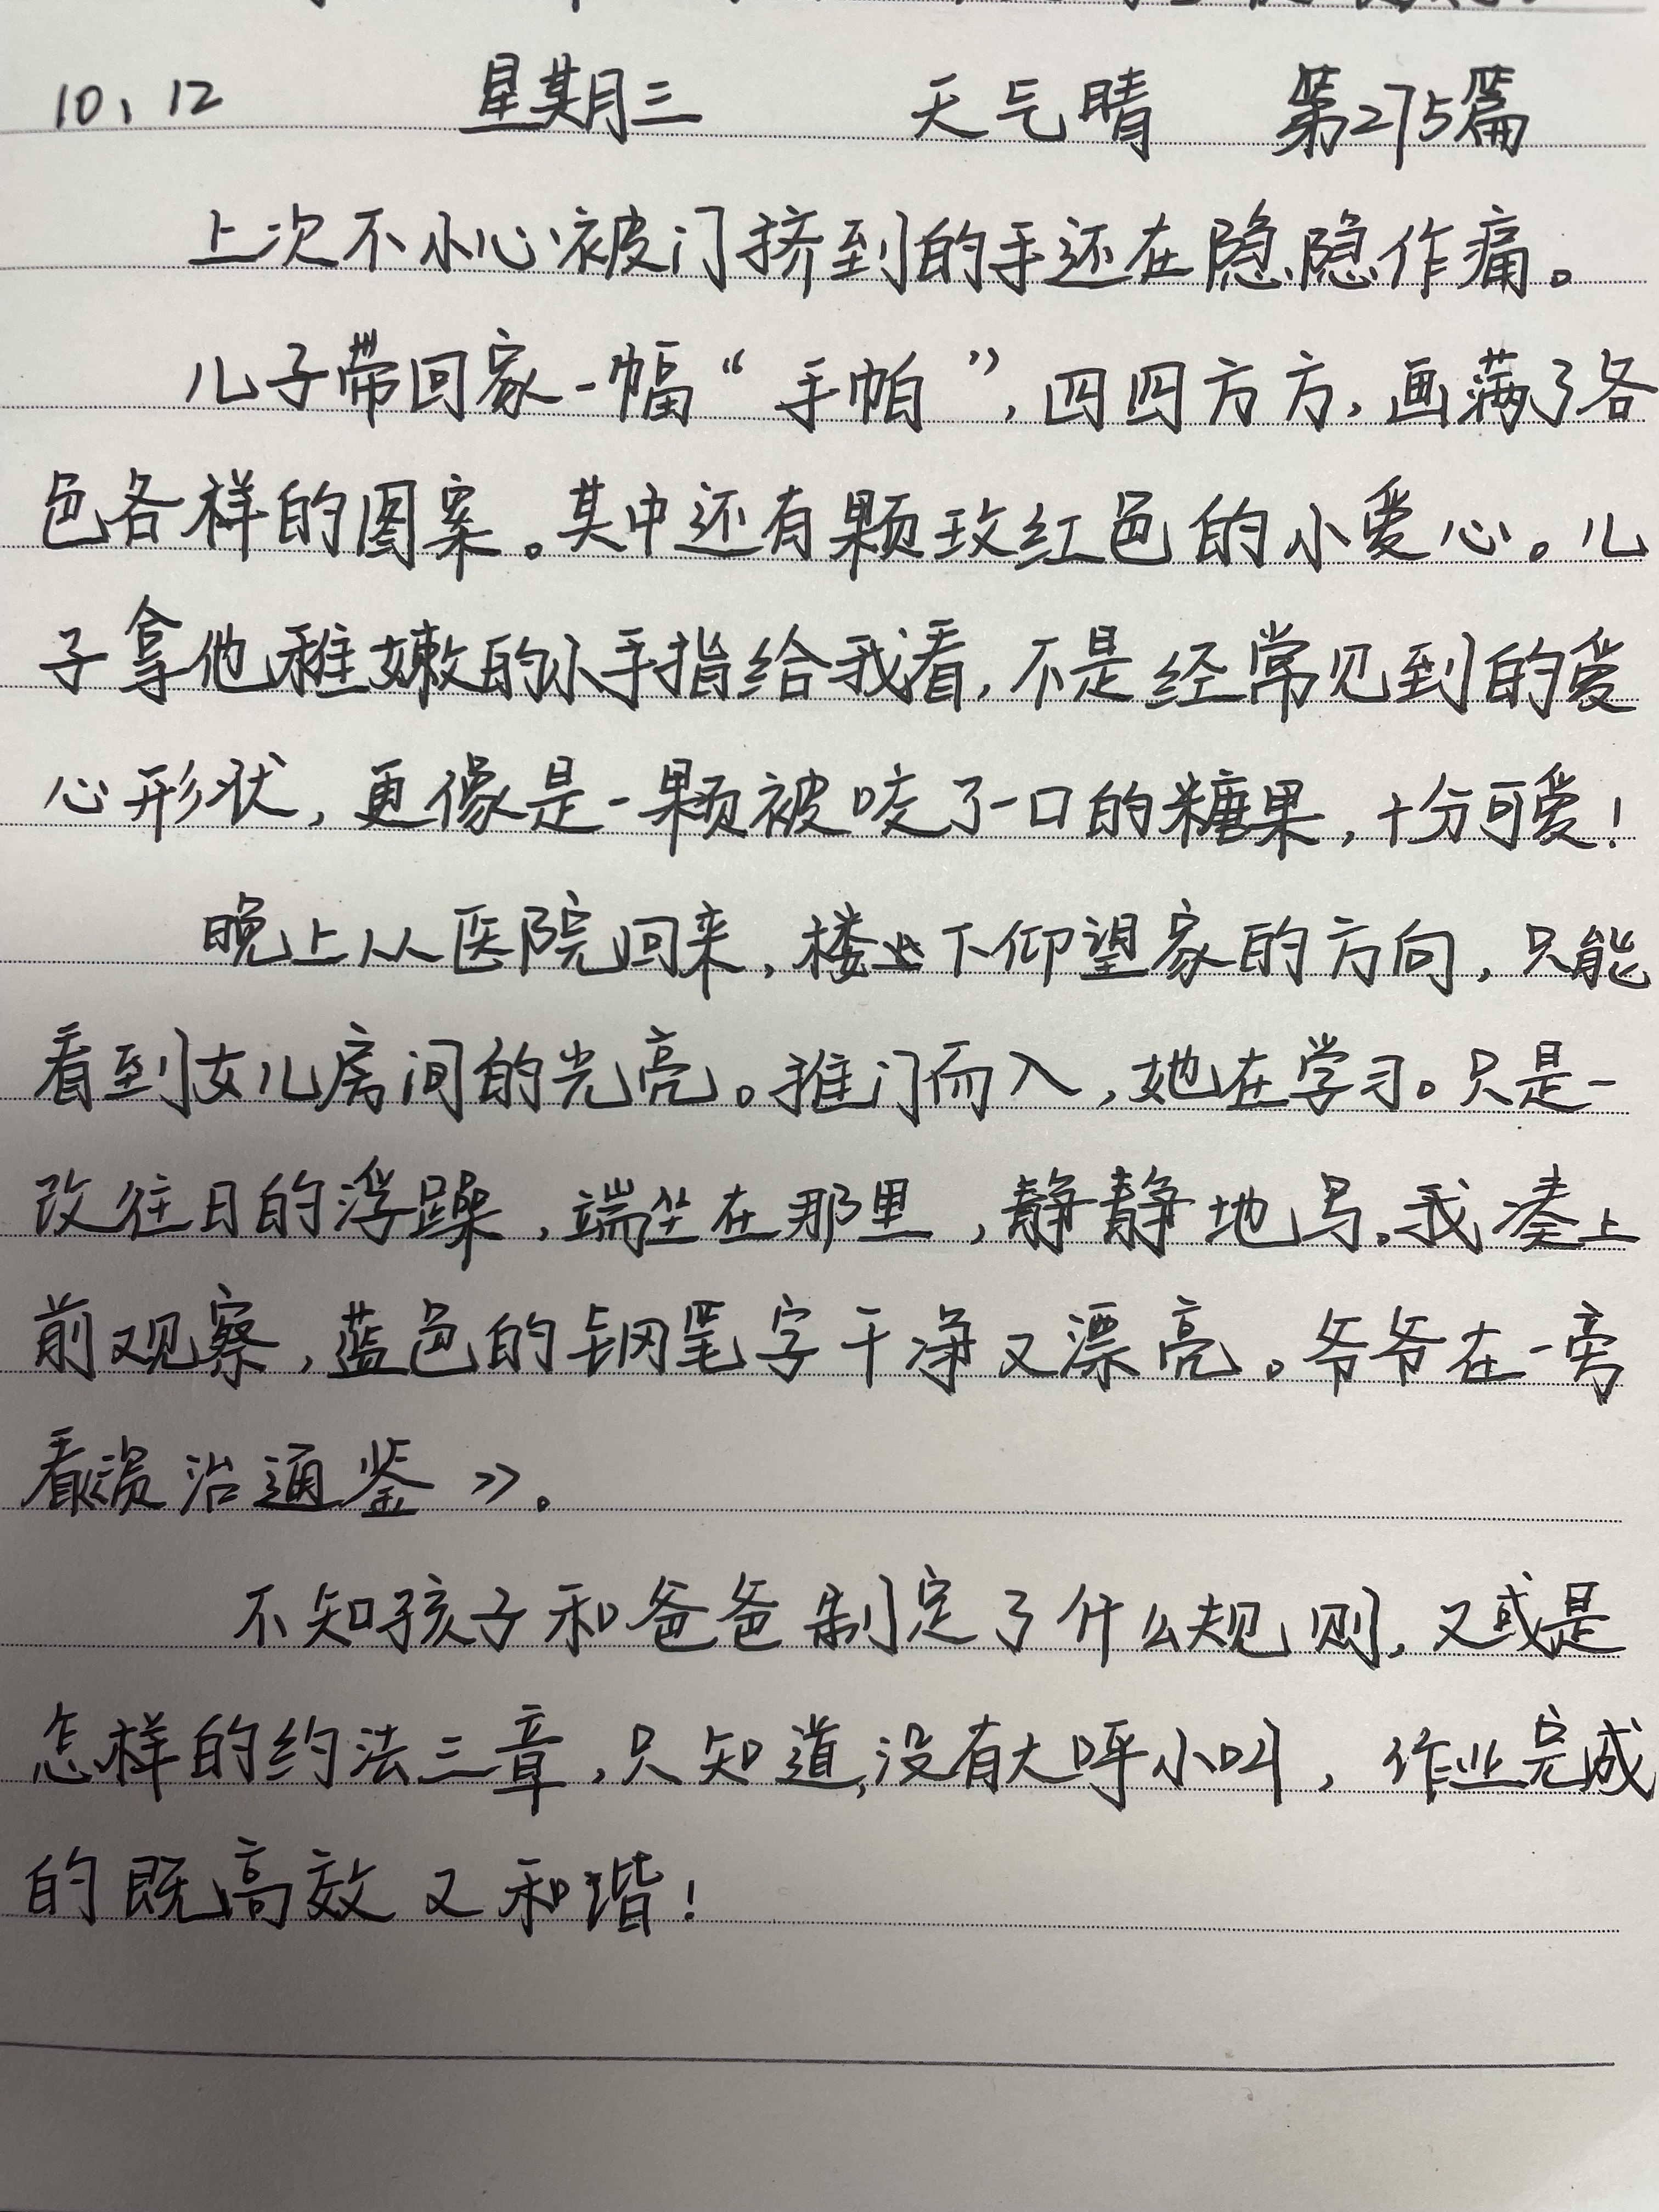 10、12 星期三 天气晴 第275篇
上次不小心被门挤到的手还在隐隐作痛。
儿子带回家一幅“手帕”，四四方方，画满了各
色各样的图案。其中还有颗玫红色的小爱心。儿
子拿他稚嫩的小手指给我看，不是经常见到的爱
心形状，更像是一颗被咬了一口的糖果，十分可爱！
晚上从医院回来，楼下仰望家的方向，只能
看到女儿房间的光亮。推门而入，她在学习。只是一
改往日的浮躁，端坐在那里，静静地写。我凑上
前观察，蓝色的钢笔字干净又漂亮。爷爷在一旁
看《资治通鉴》。
不知孩子和爸爸制定了什么规则，又或是
怎样的约法三章，只知道，没有大呼小叫，作业完成
的既高效又和谐！